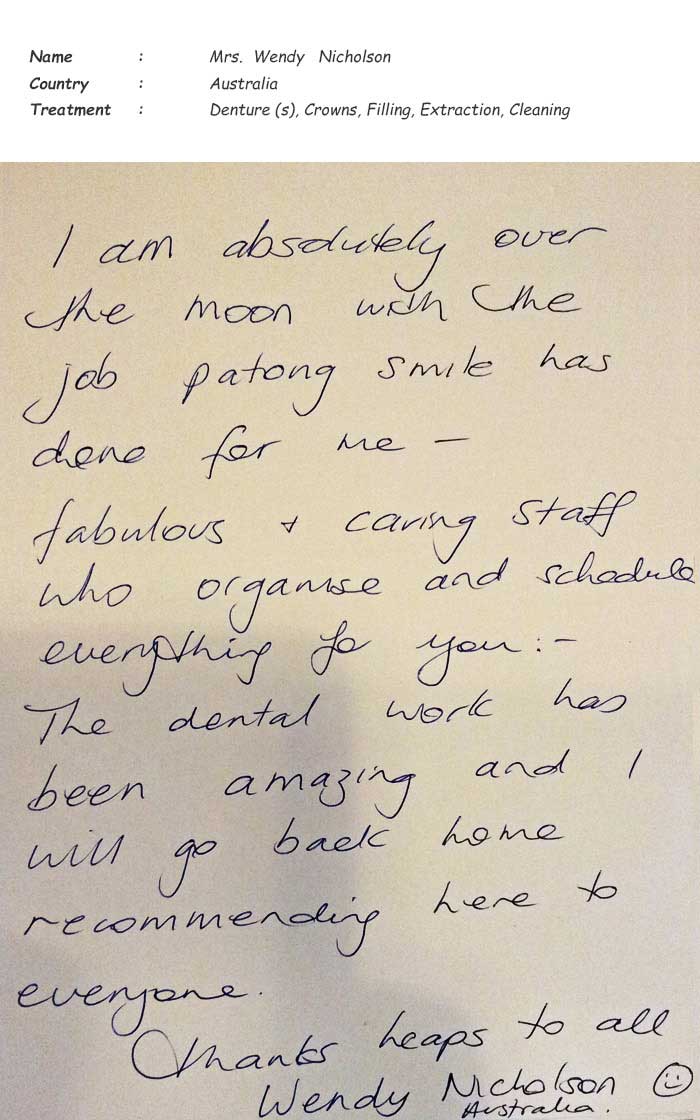 Name : Mrs. Wendy Nicholson
Country : Australia
Treatment : Denture (s), Crowns, Filling, Extraction, Cleaning
I am absolutely over
the moon with the
job patong smile has
done for me –
fabulous + caring staff
who organise and schedule
everything for you:-
The dental work has
been amazing and I
will go back home
recommending here to
everyone.
Thanks heaps to all
Wendy Nicholson
Australia.